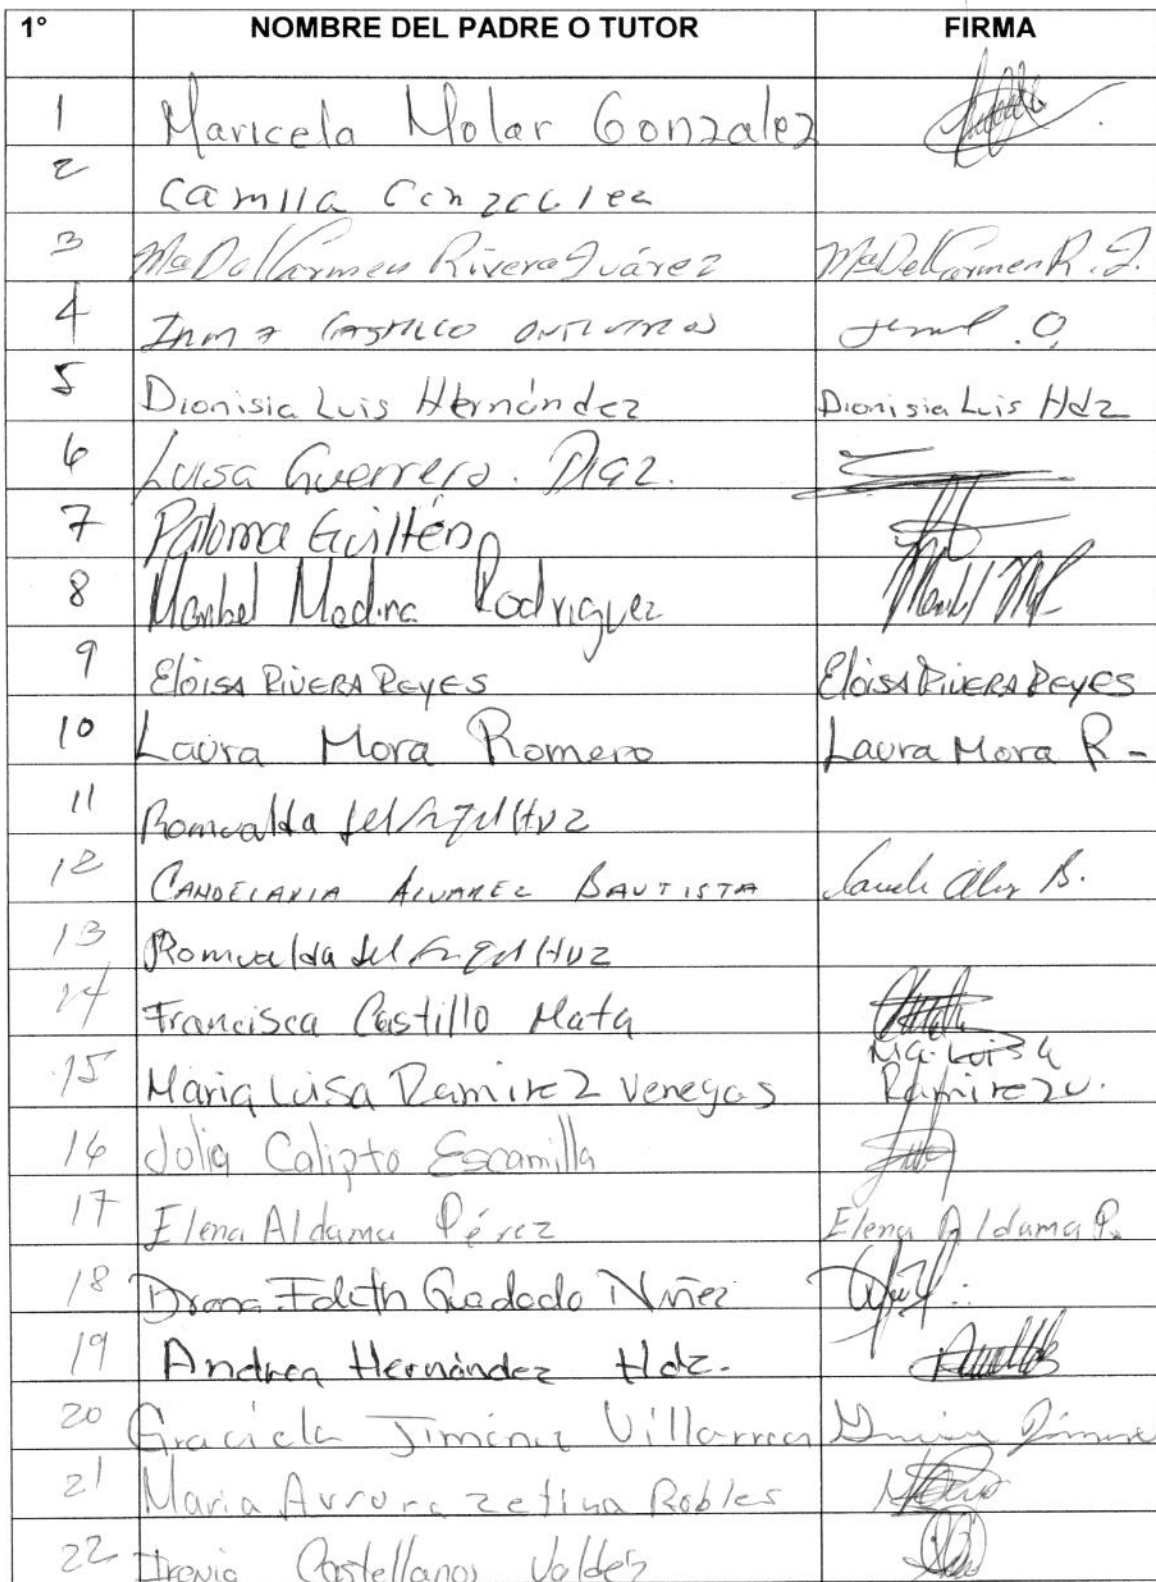 1° NOMBRE DEL PADRE O TUTOR FIRMA
1 Maricela Molar Gonzalez
2 Camila Gonzalez
3 Ma Del Carmen Rivera Juárez Ma Del Carmen R. J.
4 Irma Castillo Ontiveros
5 Dionisia Luis Hernández Dionisia Luis Hdz
6 Luisa Guerrero. Diaz.
7 Paloma Guillén
8 Maribel Medina Rodriguez
9 Eloisa RIVERA REYES Eloisa RIVERA REYES
10 Laura Mora Romero Laura Mora R-
11 Romualda del Angel Huz
12 CANDELARIA ALVAREZ BAUTISTA
13 Romualda del Angel Huz
14 Francisca Castillo Mata
15 Maria Luisa Ramirez Venegas Ma. Luisa
Ramirez V.
16 Julia Calixto Escamilla
17 Elena Aldama Pérez Elena Aldama P.
18 Edith Núñez
19 Andrea Hernández Hdz.
20 Graciela Jiménez Villarreal
21 Maria Aurora Zetina Robles
22 Irenia Castellanos Valdéz